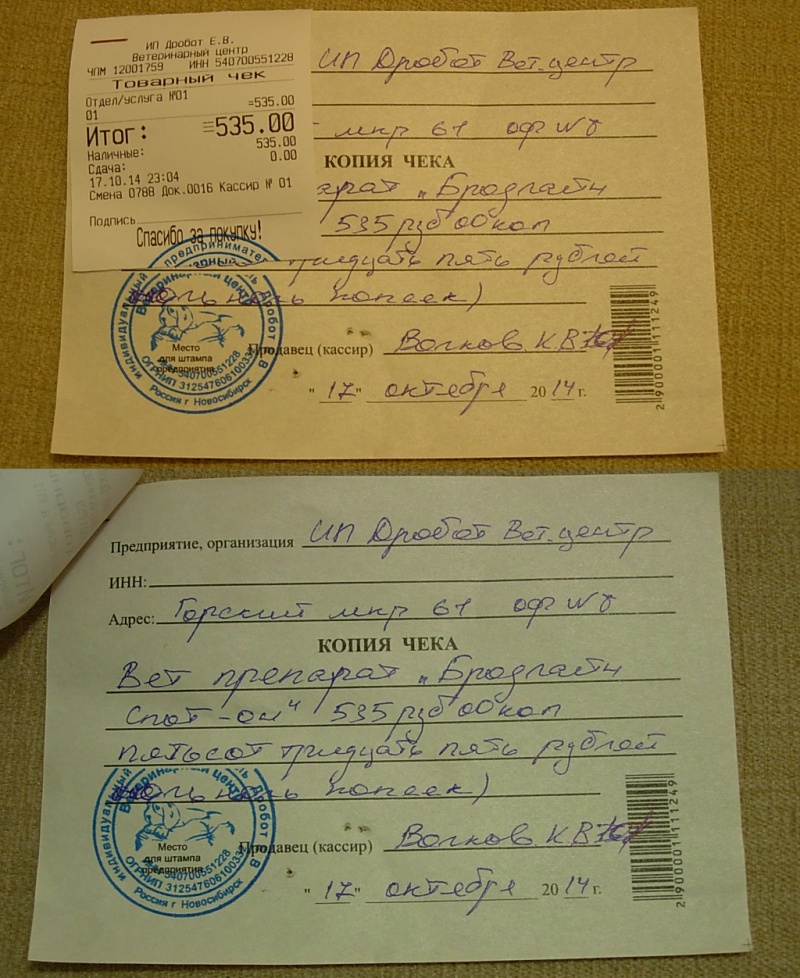 ИП Дробот Е.В.
Ветеринарный центр
ЧПМ 12001759 ИНН 540700551228
Товарный чек
Отдел/услуга №01
01 =535.00
Итог: =535.00
Наличные: 535.00
Сдача: 0.00
17.10.14 23:04
Смена 0788 Док.0016 Кассир № 01
Подпись
Спасибо за покупку!
ИП Дробот Вет.центр
мкр 61 оф №8
КОПИЯ ЧЕКА
арат „Бродлайн
535 руб 00 коп
тридцать пять рублей
ноль ноль копеек)
Продавец (кассир) Волков К.В
"17" октября 2014 г.
индивидуальный предприниматель Дробот Е.В
Ветеринарный центр
Место
для штампа
предприятия
540700551228
ОГРНИП 3125476061003
Россия г Новосибирск
2900001111249
Предприятие, организация ИП Дробот Вет.центр
ИНН:
Адрес: Горский мкр 61 оф №8
КОПИЯ ЧЕКА
Вет препарат „Бродлайн
Спот-он" 535 руб 00 коп
пятьсот тридцать пять рублей
ноль ноль копеек)
Продавец (кассир) Волков К.В
"17" октября 2014 г.
индивидуальный Дробот В
Ветеринарный центр
Место
для штампа
предприятия
540700551228
ОГРНИП 3125476061003
Россия г Новосибирск
2900001111249